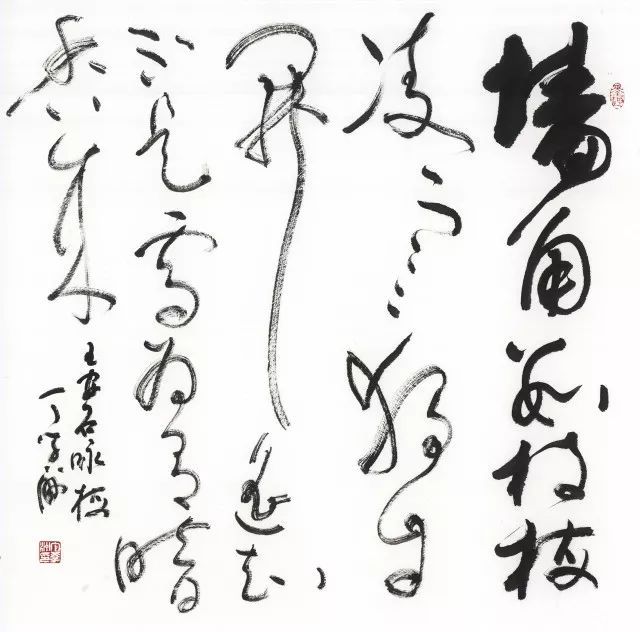 墙角数枝梅
凌寒独自
开遥知
不是雪为有暗
香来
王安石咏梅
丁学